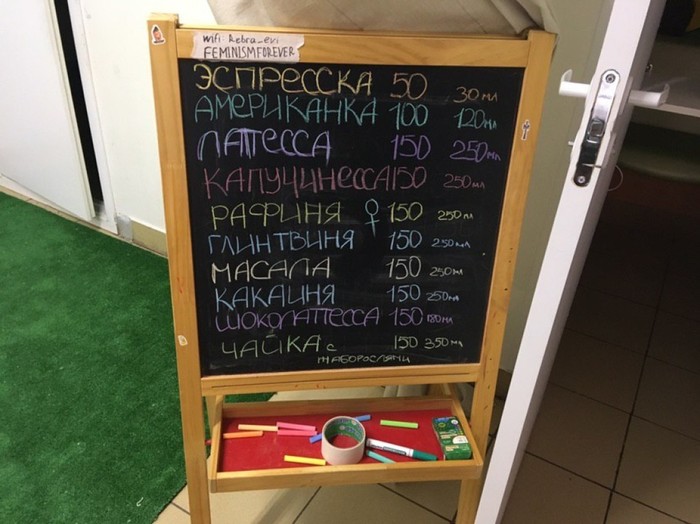 wifi kebra_evi
FEMINISMFOREVER
ЭСПРЕССКА 50 30 мл
АМЕРИКАНКА 100 120 мл
ЛАТЕССА 150 250 мл
КАПУЧИНЕССА 150 250 мл
РАФИНЯ ♀ 150 250 мл
ГЛИНТВИНЯ 150 250 мл
МАСАЛА 150 250 мл
КАКАИНЯ 150 250 мл
ШОКОЛАТЕССА 150 180 мл
ЧАЙКА с 150 350 мл
ЖАБОРОСЛЯМИ